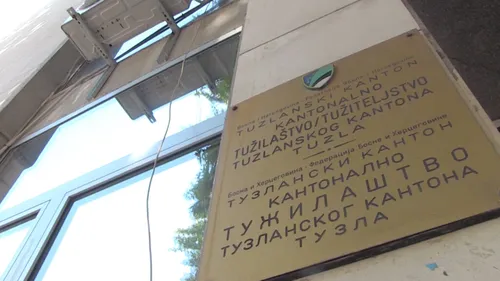 TUZLANSKI KANTON
KANTONALNO
TUŽILAŠTVO/TUŽITELJSTVO
TUZLANSKOG KANTONA
TUZLA
Босна и Херцеговина - Федерација Босне и Херцеговине
ТУЗЛАНСКИ КАНТОН
КАНТОНАЛНО
ТУЖИЛАШТВО
ТУЗЛАНСКОГ КАНТОНА
ТУЗЛА